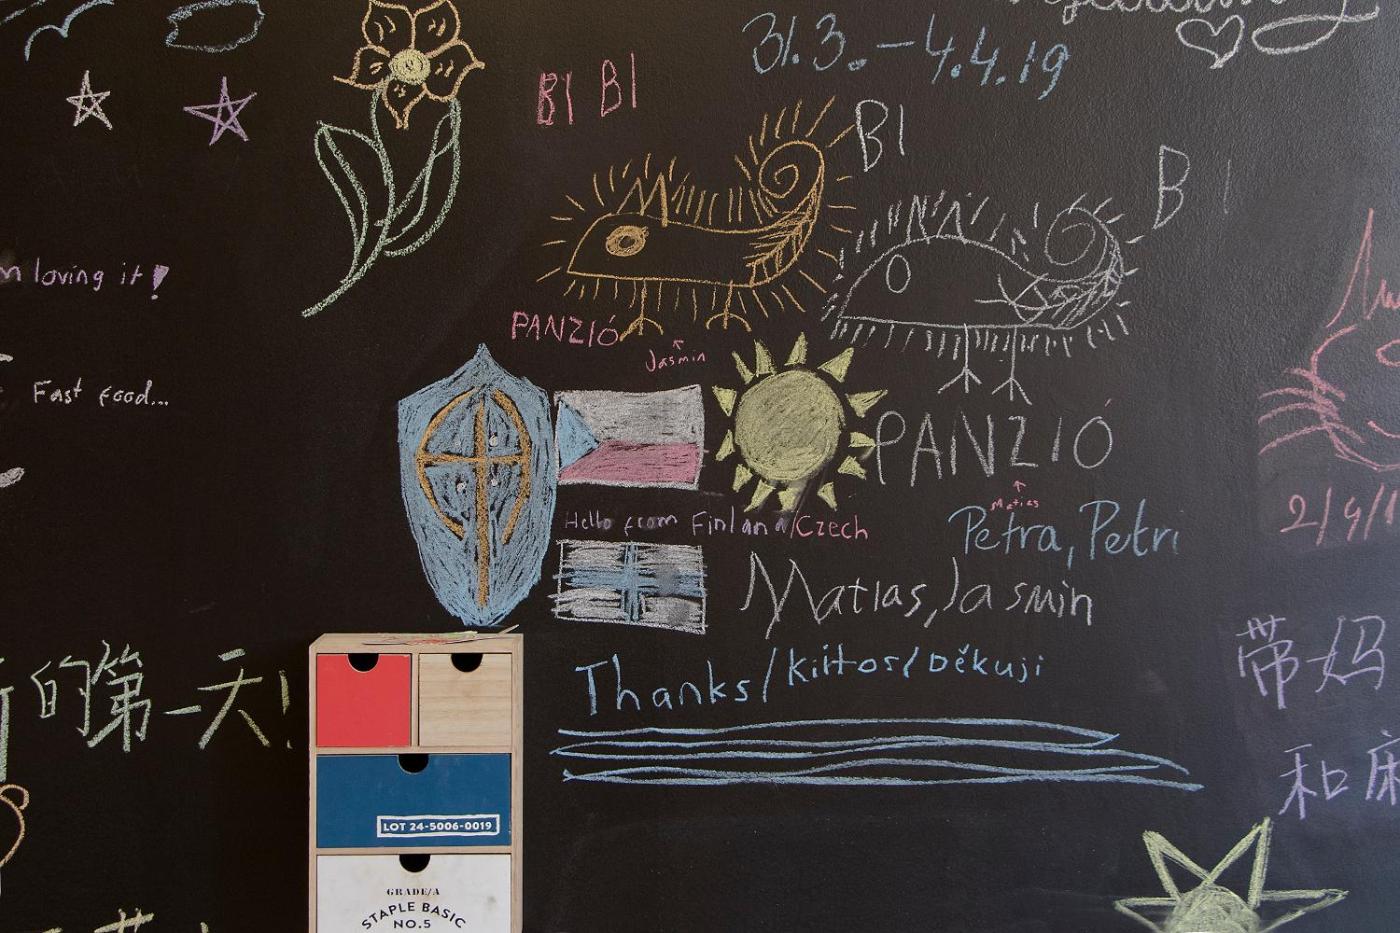 31.3.-4.4.19
BI BI
BI
BI
m loving it!
PANZIÓ
Jasmin
Fast food...
PANZIÓ
Matias
Hello from Finland/Czech
Petra, Petri
2/4/
Matias, Jasmin
Thanks/kiitos/Děkuji
的第一天!
带妈
和麻
LOT 24-5006-0019
GRADE/A
STAPLE BASIC
NO.5